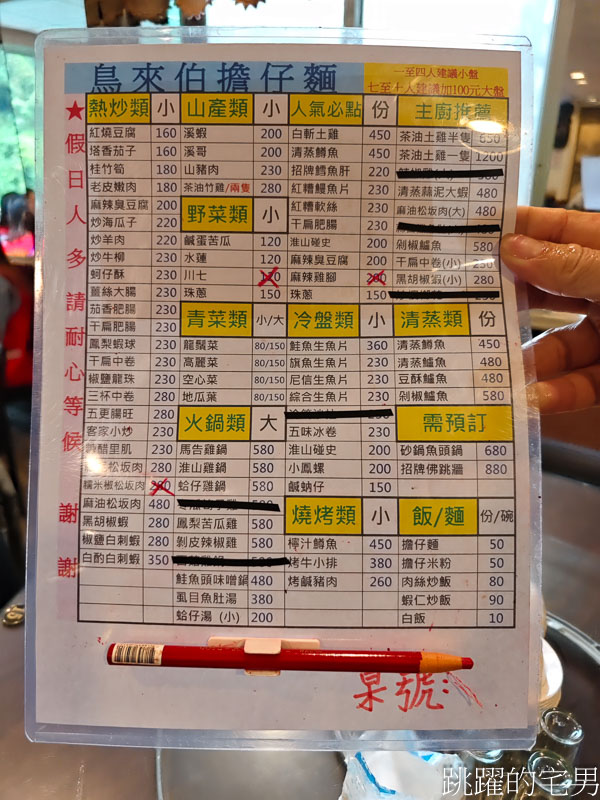 烏來伯擔仔麵
一至四人建議小盤
七至十人建議加100元大盤
★假日人多請耐心等候 謝謝
熱炒類 小
紅燒豆腐 160
塔香茄子 160
桂竹筍 180
老皮嫩肉 180
麻辣臭豆腐 200
炒海瓜子 220
炒羊肉 220
炒牛柳 230
蚵仔酥 230
薑絲大腸 230
茄香肥腸 230
干扁肥腸 230
鳳梨蝦球 230
干扁中卷 230
椒鹽龍珠 230
三杯中卷 280
五更腸旺 280
客家小炒 230
醋里肌 230
松坂肉 280
糯米椒松坂肉
麻油松坂肉 480
黑胡椒蝦 280
椒鹽白刺蝦 280
白酌白刺蝦 350
山產類 小
溪蝦 200
溪哥 200
山豬肉 230
茶油竹雞/兩隻 280
野菜類 小
鹹蛋苦瓜 120
水蓮 120
川七
珠蔥 150
青菜類 小/大
龍鬚菜 80/150
高麗菜 80/150
空心菜 80/150
地瓜葉 80/150
火鍋類 大
馬告雞鍋 580
淮山雞鍋 580
蛤仔雞鍋 580
鳳梨苦瓜雞 580
剝皮辣椒雞 580
鮭魚頭味噌鍋 480
虱目魚肚湯 380
蛤仔湯 (小) 200
人氣必點 份
白斬土雞 450
清蒸鱒魚 450
招牌魚肝 220
紅糟鰻魚片 230
紅糟軟絲 230
干扁肥腸 230
淮山碰史 200
麻辣臭豆腐 200
麻辣雞腳
珠蔥 150
冷盤類 小
鮭魚生魚片 360
旗魚生魚片 230
尼信生魚片 230
綜合生魚片 230
五味冰卷 230
淮山碰史 200
小鳳螺 200
鹹蚋仔 150
燒烤類 小
檸汁鱒魚 450
烤牛小排 380
烤鹹豬肉 260
主廚推薦
茶油土雞半隻 650
茶油土雞一隻 1200
清蒸蒜泥大蝦 480
麻油松坂肉(大) 480
剁椒鱸魚 580
干扁中卷(小) 230
黑胡椒蝦(小) 280
清蒸類 份
清蒸鱒魚 450
清蒸鱸魚 480
豆酥鱸魚 480
剁椒鱸魚 580
需預訂
砂鍋魚頭鍋 680
招牌佛跳牆 880
飯/麵 份/碗
擔仔麵 50
擔仔米粉 50
肉絲炒飯 80
蝦仁炒飯 90
白飯 10
桌號:
跳躍的宅男